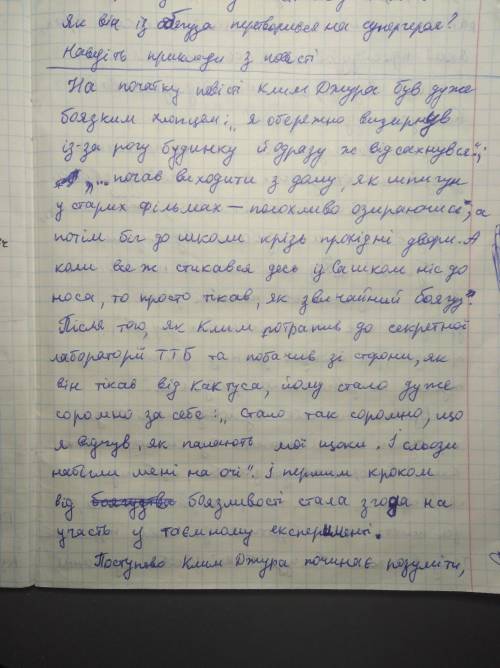 Як він із боягуза перетворився на супергероя?
Наведіть приклади з повісті
На початку повісті Клим Джура був дуже
боязким хлопцем: „я обережно визирнув
із-за рогу будинку й одразу ж відсахнувся";
„... почав виходити з дому, як шпигун
у старих фільмах — полохливо озираючись", а
потім біг до школи крізь прохідні двори. А
коли все ж стикався десь із Вашком ніс до
носа, то просто тікав, як звичайний боягуз".
Після того, як Клим потрапив до секретної
лабораторії ТТБ та побачив зі сторони, як
він тікав від кактуса, йому стало дуже
соромно за себе: „Стало так соромно, що
я відчув, як палають мої щоки. І сльози
набігли мені на очі". І першим кроком
від боязливості стала згода на
участь у таємному експерименті.
Поступово Клим Джура починає розуміти,